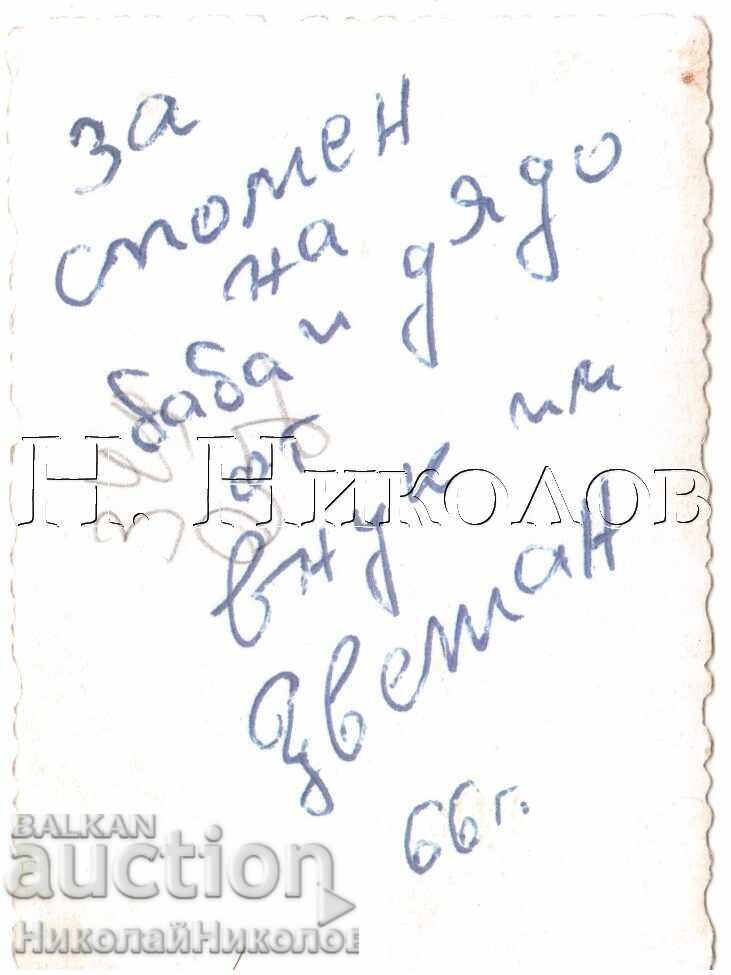 за
спомен
на
баба и дядо
от
внук им
Цветан
66 г.
Н. Николов
BALKAN
auction
НиколайНиколов